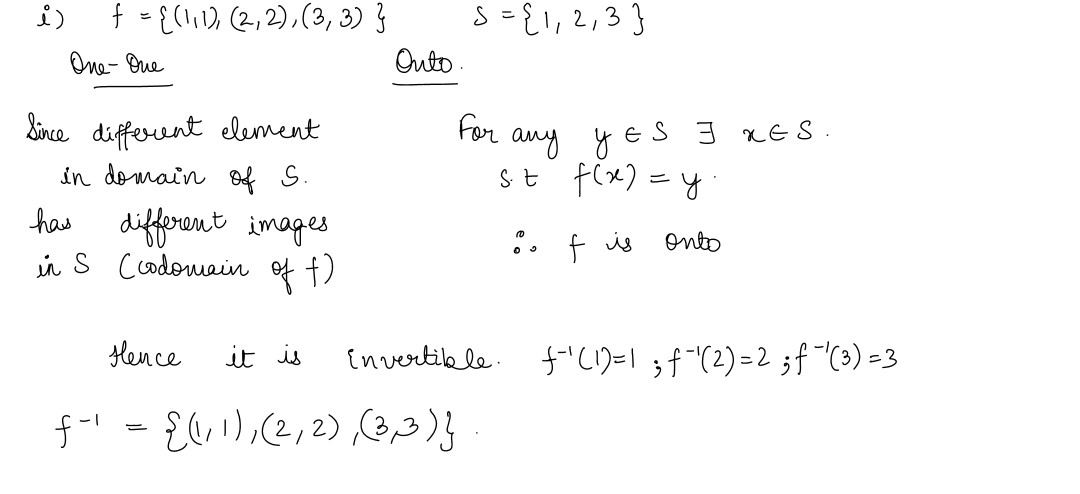 i) f = {(1,1), (2,2), (3,3)} S = {1, 2, 3}
One-One
Onto.
Since different element
in domain of S.
has different images
in S (codomain of f)
For any y ∈ S ∃ x ∈ S.
s.t f(x) = y.
∴ f is onto
Hence it is invertible. f⁻¹(1)=1 ; f⁻¹(2)=2 ; f⁻¹(3)=3
f⁻¹ = {(1,1), (2,2), (3,3)}.